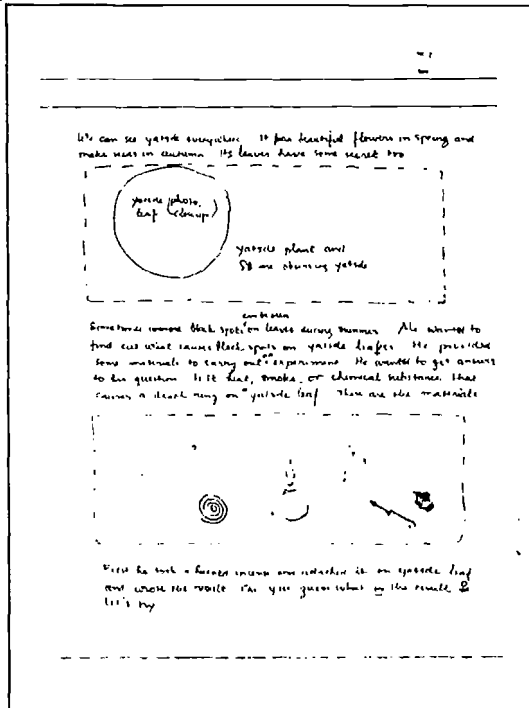 We can see yatsude everywhere It has beautiful flowers in spring and
make seeds in autumn Its leaves have some secret too
yatsude photo
leaf (closeup)
yatsude plant and
are observing yatsude
can be seen
Sometimes black spots on leaves during summer He wanted to
find out what causes black spots on yatsude leafes He provided
some materials to carrying out experiment He wanted to get answer
to his question Is it heat, smoke, or chemical substance that
causes a death ring on yatsude leaf These are the materials
First he a incense and it on yatsude leaf
and wrote the Can you guess what is the result
let's try